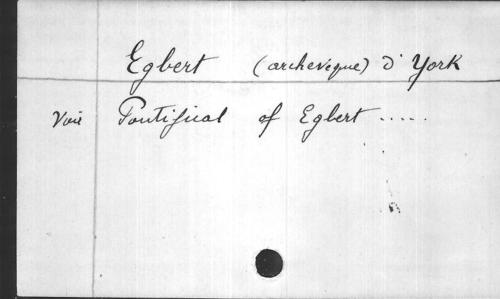 Egbert (archeveque) d' York
Voir Pontifical of Egbert .....